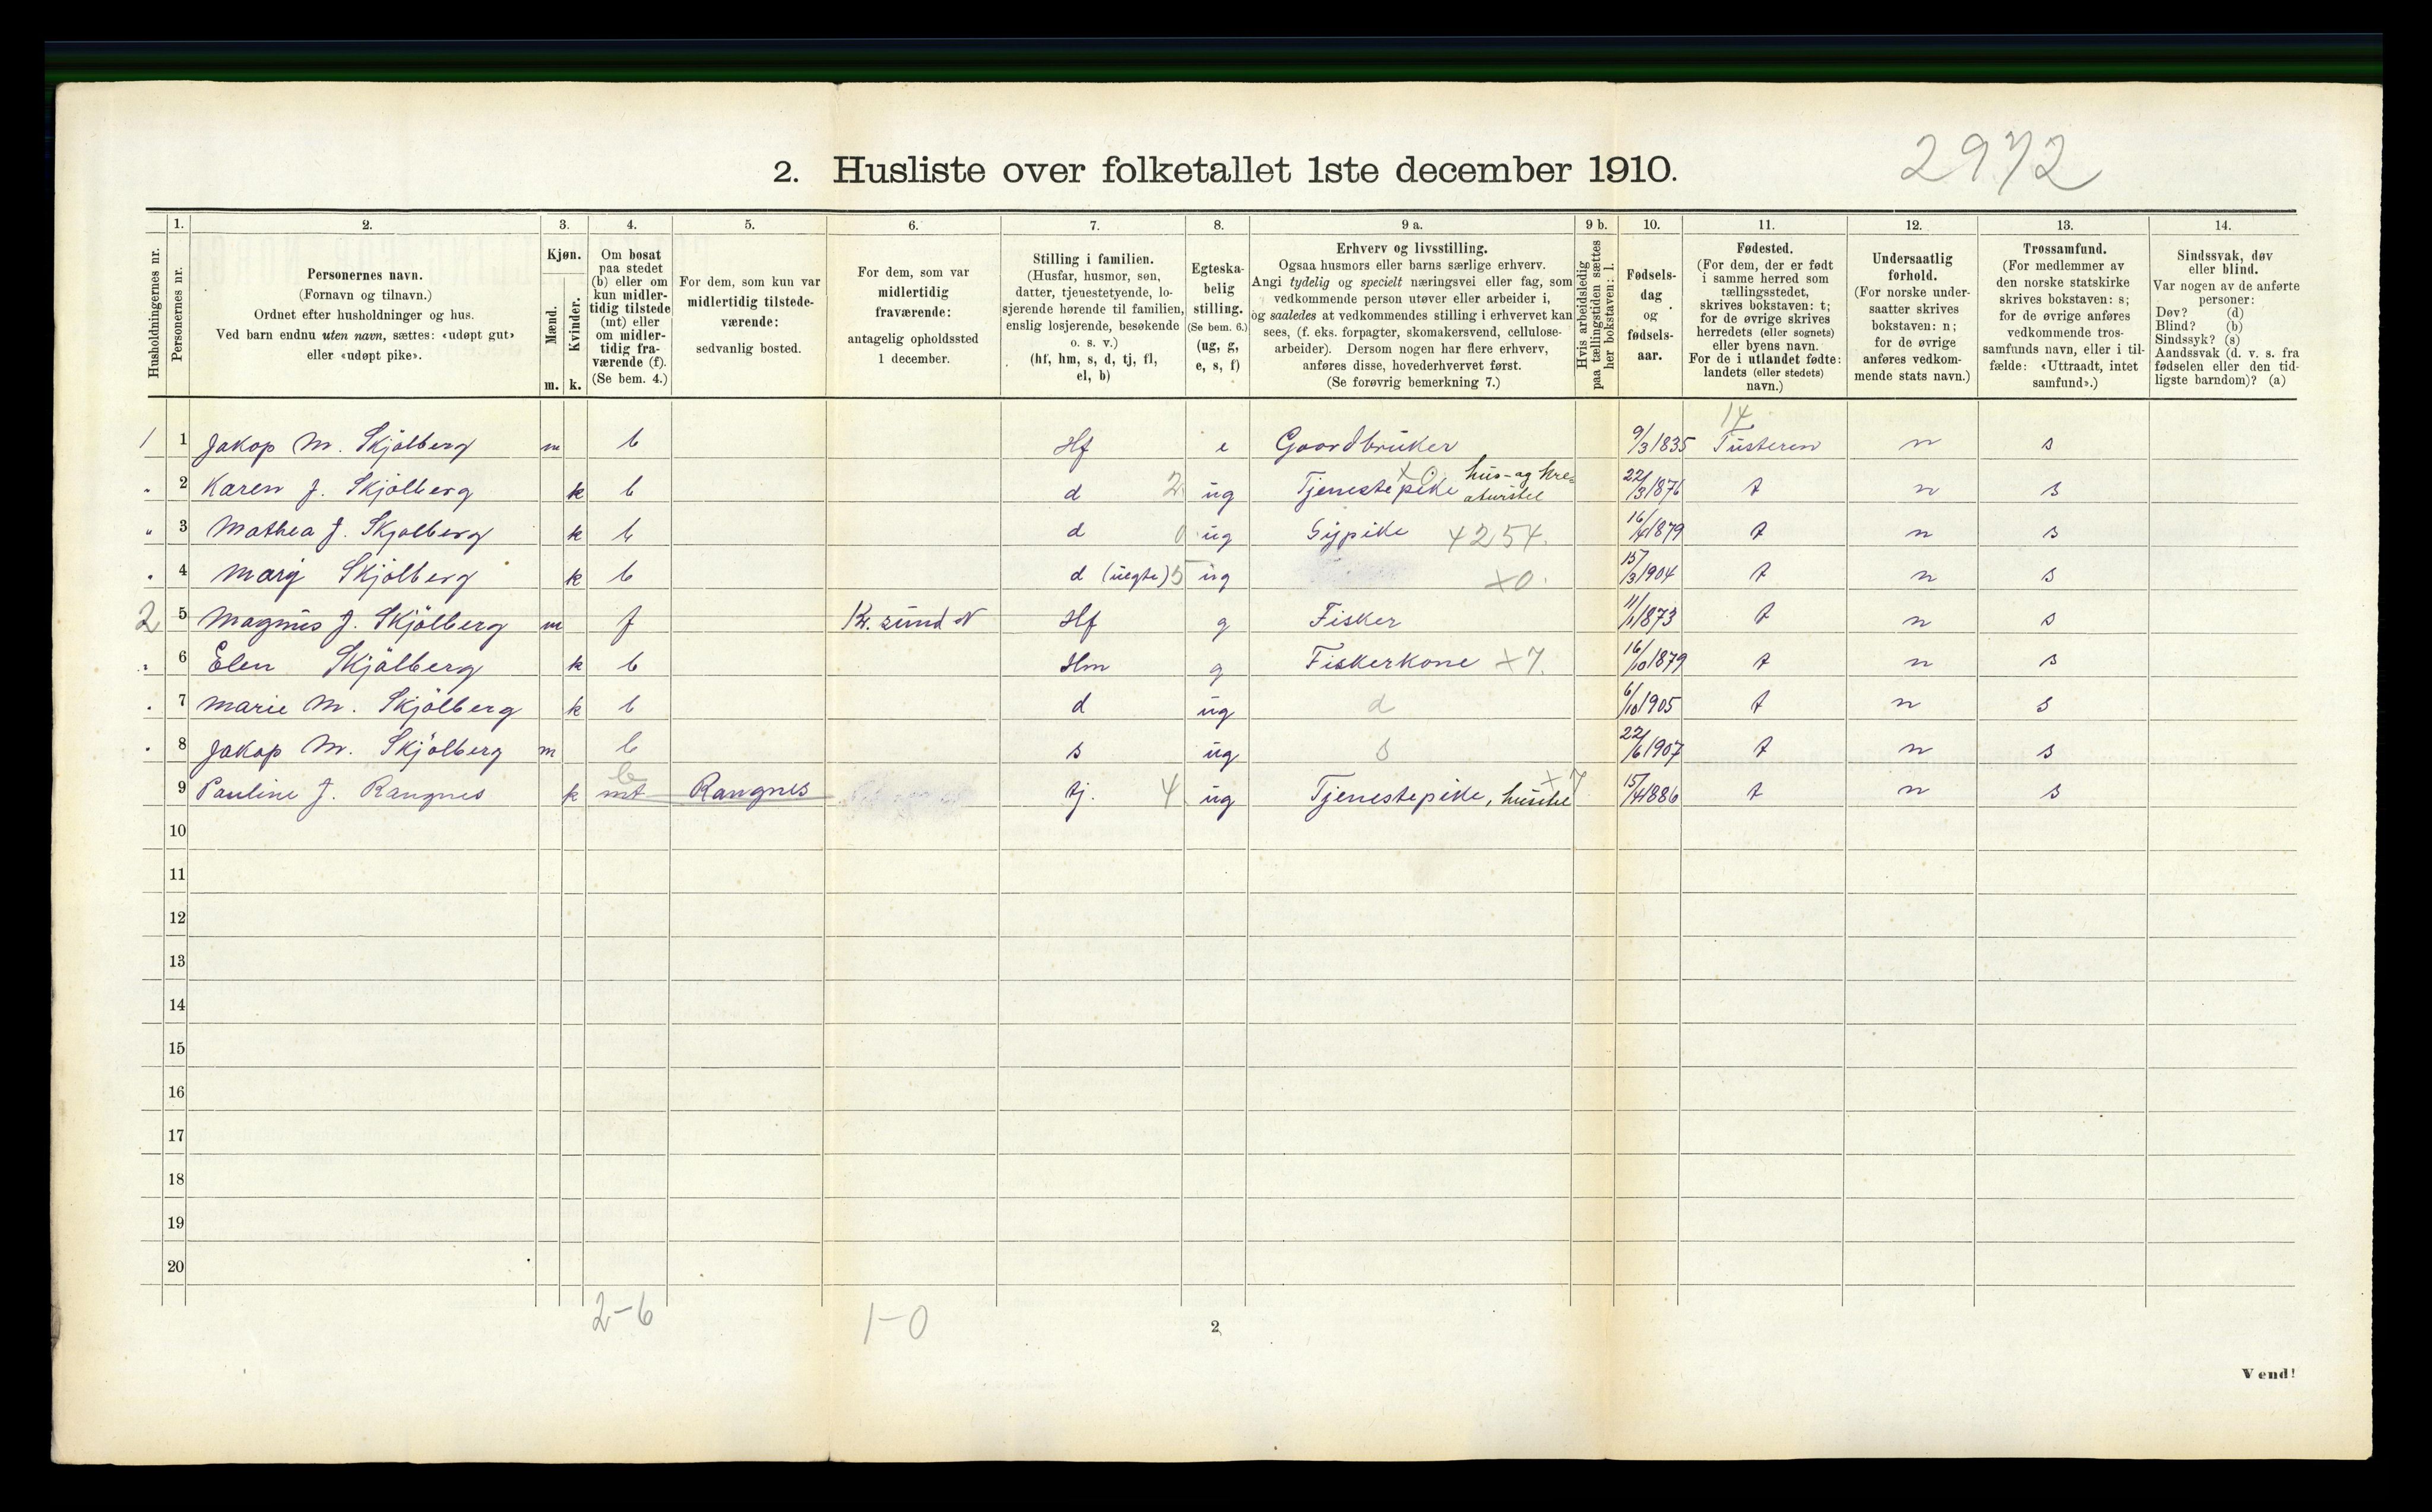 2. Husliste over folketallet 1ste december 1910.
2972
Husholdningernes nr.
1. Personernes nr.
2. Personernes navn.
(Fornavn og tilnavn.)
Ordnet efter husholdninger og hus.
Ved barn endnu uten navn, sættes: «udøpt gut»
eller «udøpt pike».
3. Kjøn.
Mænd. m.
Kvinder. k.
4. Om bosat
paa stedet
(b) eller om
kun midler-
tidig tilstede
(mt) eller
om midler-
tidig fra-
værende (f).
(Se bem. 4.)
5. For dem, som kun var
midlertidig tilstede-
værende:
sedvanlig bosted.
6. For dem, som var
midlertidig
fraværende:
antagelig opholdssted
1 december.
7. Stilling i familien.
(Husfar, husmor, søn,
datter, tjenestetyende, lo-
sjerende hørende til familien,
enslig losjerende, besøkende
o. s. v.)
(hf, hm, s, d, tj, fl,
el, b)
8. Egteska-
belig
stilling.
(Se bem. 6.)
(ug, g,
e, s, f)
9 a. Erhverv og livsstilling.
Ogsaa husmors eller barns særlige erhverv.
Angi tydelig og specielt næringsvei eller fag, som
vedkommende person utøver eller arbeider i,
og saaledes at vedkommendes stilling i erhvervet kan
sees, (f. eks. forpagter, skomakersvend, cellulose-
arbeider). Dersom nogen har flere erhverv,
anføres disse, hovederhvervet først.
(Se forøvrig bemerkning 7.)
9 b. Hvis arbeidsledig
paa tællingstiden sættes
her bokstaven: l.
10. Fødsels-
dag
og
fødsels-
aar.
11. Fødested.
(For dem, der er født
i samme herred som
tællingsstedet,
skrives bokstaven: t;
for de øvrige skrives
herredets (eller sognets)
eller byens navn.
For de i utlandet fødte:
landets (eller stedets)
navn.)
12. Undersaatlig
forhold.
(For norske under-
saatter skrives
bokstaven: n;
for de øvrige
anføres vedkom-
mende stats navn.)
13. Trossamfund.
(For medlemmer av
den norske statskirke
skrives bokstaven: s;
for de øvrige anføres
vedkommende tros-
samfunds navn, eller i til-
fælde: «Uttraadt, intet
samfund».)
14. Sindssvak, døv
eller blind.
Var nogen av de anførte
personer:
Døv? (d)
Blind? (b)
Sindssyk? (s)
Aandssvak (d. v. s. fra
fødselen eller den tid-
ligste barndom)? (a)
14
1 1 Jakop M. Skjølberg m b Hf e Gaardbruker 9/3 1835 Tusteren n s
" 2 Karen J. Skjølberg k b d 2 ug Tjenestepike x0 hus- og kre-
aturstel 22/3 1876 t n s
" 3 Mathea J. Skjølberg k b d 0 ug Sypike 4254. 16/4 1879 t n s
" 4 Marij Skjølberg k b d (uegte) 5 ug x0. 15/3 1904 t n s
2 5 Magnus J. Skjølberg m f Kr. sund N Hf g Fisker 11/1 1873 t n s
" 6 Elen Skjølberg k b Hm g Fiskerkone x7. 16/10 1879 t n s
" 7 Marie M. Skjølberg k b d ug d 6/10 1905 t n s
" 8 Jakop M. Skjølberg m b s ug s 22/6 1907 t n s
9 Pauline J. Rangnes k b mt Rangnes tj. 4 ug Tjenestepike, husstel x7 15/4 1886 t n s
10
11
12
13
14
15
16
17
18
19
20
2-6 1-0
2
Vend!